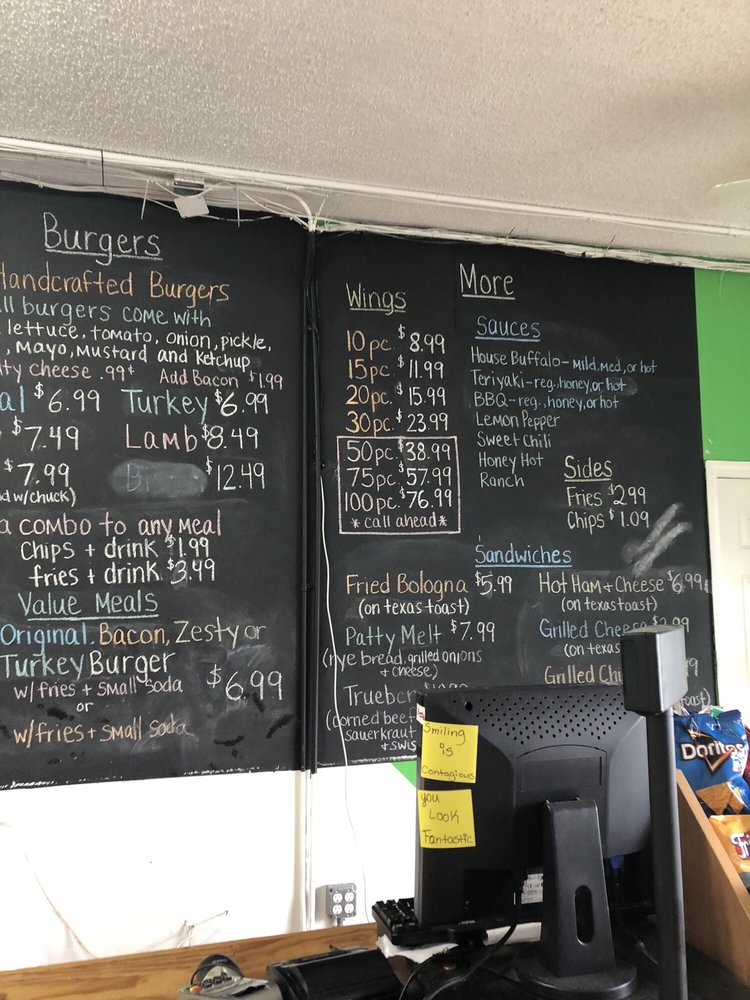 Burgers
Handcrafted Burgers
all burgers come with
lettuce, tomato, onion, pickle,
, mayo, mustard and ketchup
cheese .99¢ Add Bacon $1.99
$6.99 Turkey $6.99
$7.49 Lamb $8.49
$7.99 $12.49
w/chuck)
a combo to any meal
chips + drink $1.99
fries + drink $3.49
Value Meals
Original, Bacon, Zesty or
Turkey Burger
w/ fries + small soda $6.99
or
w/fries + small soda
More
Wings
10 pc. $8.99
15 pc. $11.99
20 pc. $15.99
30 pc. $23.99
50 pc. $38.99
75 pc. $57.99
100 pc. $76.99
*call ahead*
Sauces
House Buffalo - mild, med, or hot
Teriyaki - reg., honey, or hot
BBQ - reg., honey, or hot
Lemon Pepper
Sweet Chili
Honey Hot
Ranch
Sides
Fries $2.99
Chips $1.09
Sandwiches
Fried Bologna $5.99
(on texas toast)
Patty Melt $7.99
(rye bread, grilled onions
+ cheese)
(corned beef
sauerkraut
+ swis
Hot Ham + Cheese $6.99
(on texas toast)
Grilled Cheese
(on texas
Grilled
Smiling
is
Contagious
you
Look
Fantastic
Doritos